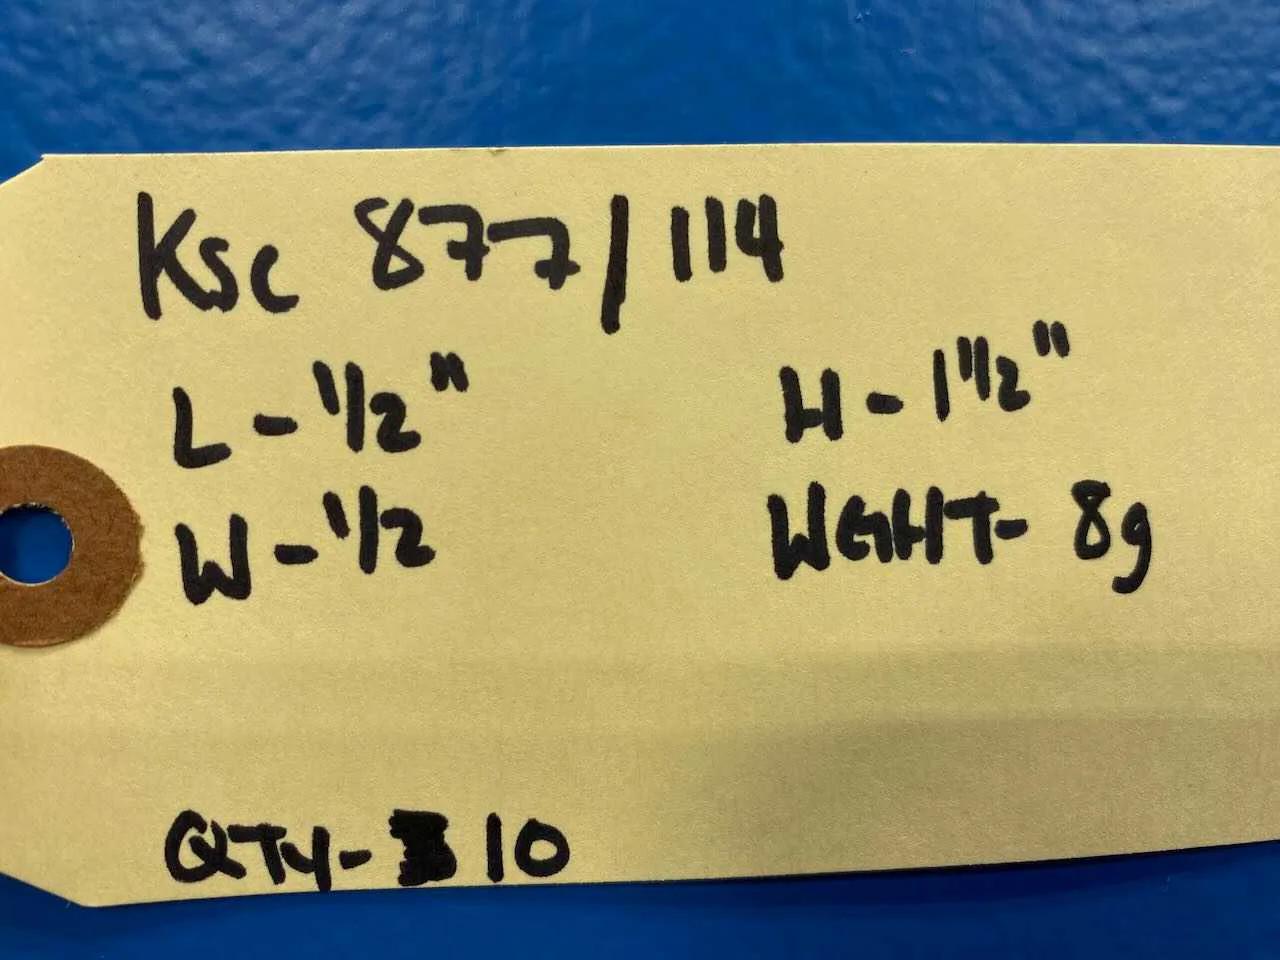 Ksc 877/114
L - 1/2" H - 1 1/2"
W - 1/2 WGHT - 8g
QTY - 10